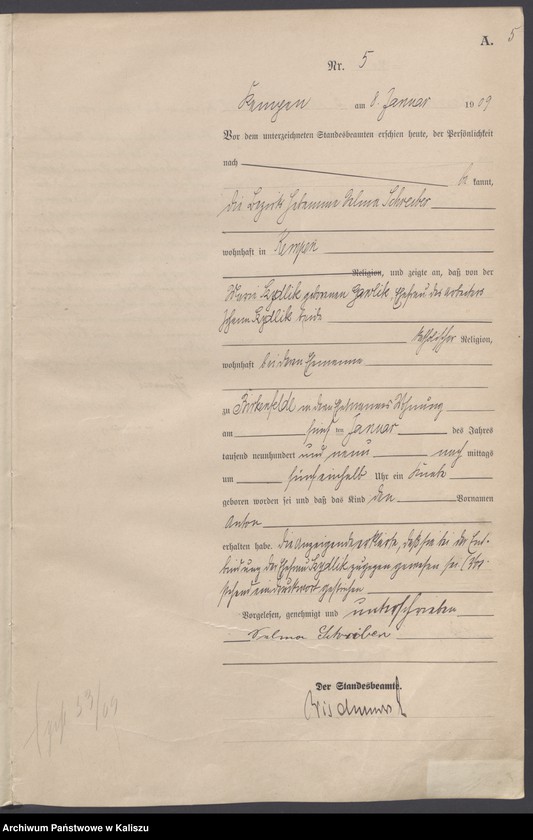 A. 5
Nr. 5
Kempen am 8. Januar 1909
Vor dem unterzeichneten Standesbeamten erschien heute, der Persönlichkeit
nach be kannt,
die Bezirks Hebamme Selma Schreiber
wohnhaft in Kempen
Religion, und zeigte an, daß von der
Marie Szydlik geborenen Gawlik, Ehefrau des Arbeiters
Johann Szydlik beide
katholischer Religion,
wohnhaft bei ihrem Ehemanne
zu Birkenfelde in ihres Ehemannes Wohnung
am fünf ten Januar des Jahres
tausend neunhundert und neun nach mittags
um fünf einhalb Uhr ein Knabe
geboren worden sei und daß das Kind den Vornamen
Anton
erhalten habe. Die Anzeigende erklärte, daß sie bei der Ent-
bindung der Ehefrau Szydlik zugegen gewesen sei. (Vor-
stehend ein Druckwort gestrichen
Vorgelesen, genehmigt und unterschrieben
Selma Schreiber
Der Standesbeamte.
33/09
Archiwum Państwowe w Kaliszu